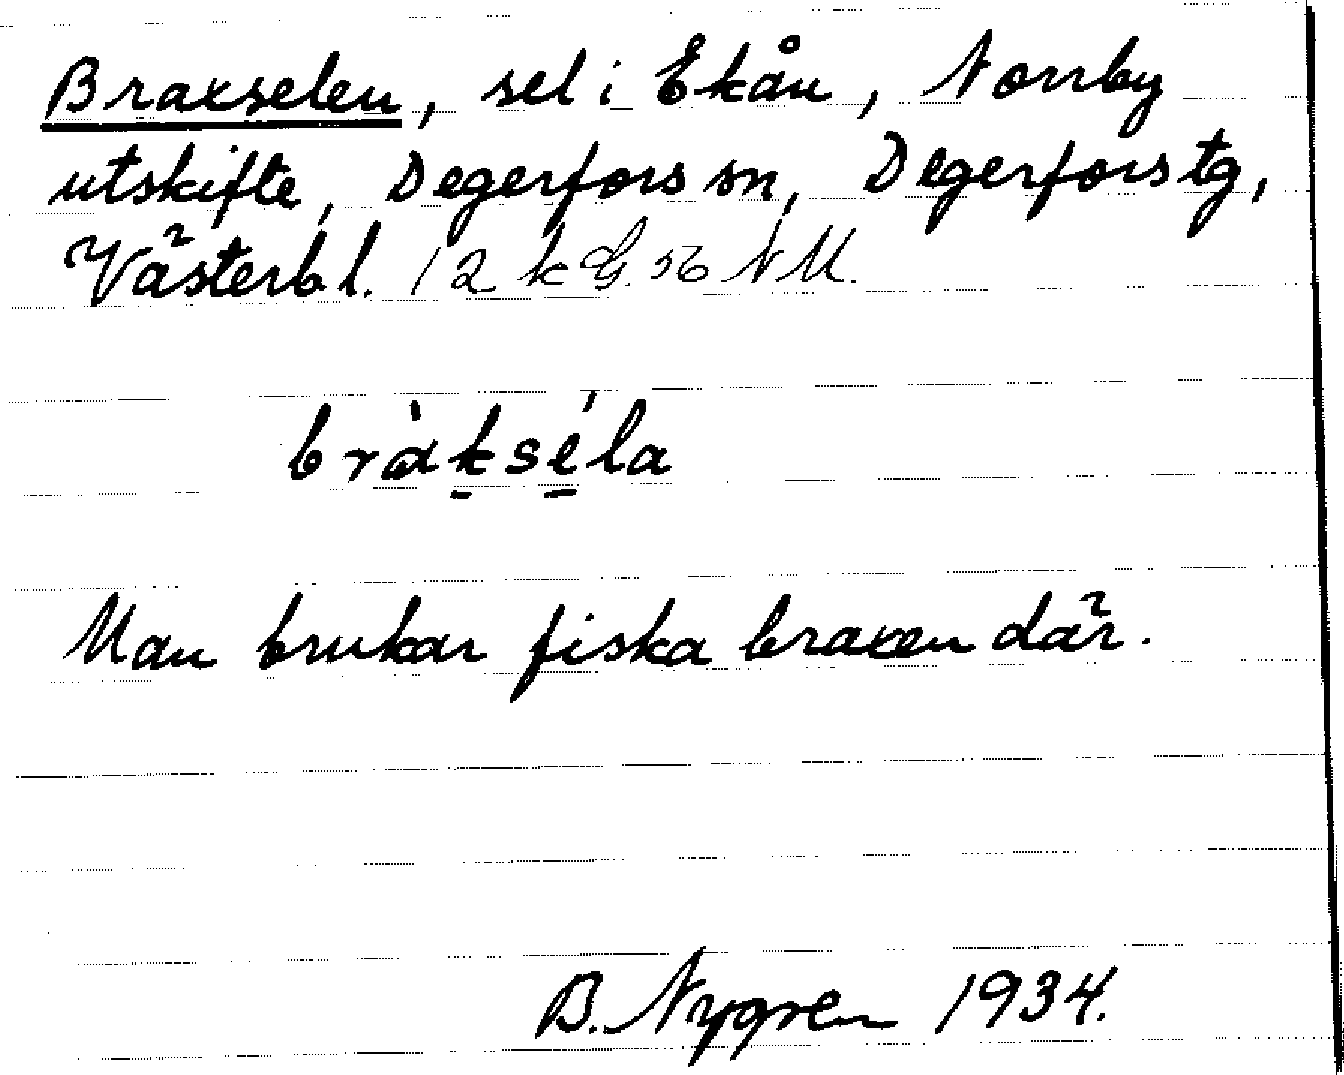 Braxselen, sel i Ekån, Norrby
utskifte, Degerfors sn, Degerfors tg,
Västerb l. 12 k G. 56 NM.
bràkséla
Man brukar fiska braxen där.
B. Nygren 1934.